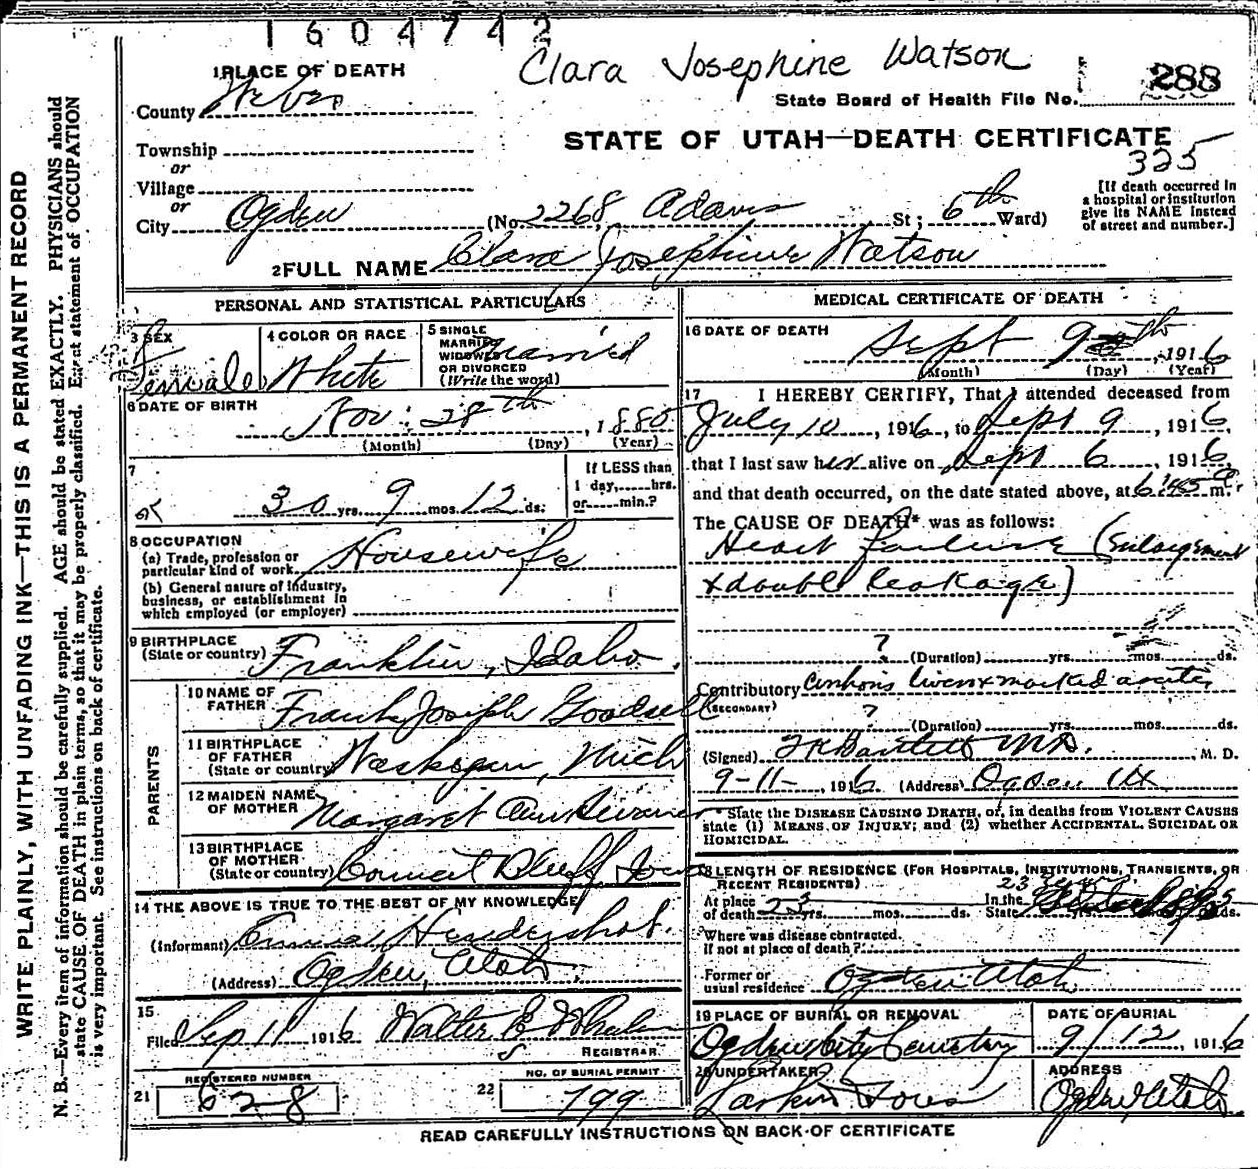 1604742
Clara Josephine Watson
1 PLACE OF DEATH
County Weber
State Board of Health File No. 288
STATE OF UTAH—DEATH CERTIFICATE
325
Township
or
Village
or
City Ogden (No. 2268, Adams St; 6th Ward)
[If death occurred in
a hospital or institution
give its NAME instead
of street and number.]
2 FULL NAME Clara Josephine Watson
PERSONAL AND STATISTICAL PARTICULARS
3 SEX
Female
4 COLOR OR RACE
White
5 SINGLE
MARRIED
WIDOWED
OR DIVORCED
(Write the word)
married
6 DATE OF BIRTH
Nov. 28th, 1885
(Month) (Day) (Year)
7
30 yrs. 9 mos. 12 ds.
If LESS than
1 day, hrs.
or min.?
8 OCCUPATION
(a) Trade, profession or
particular kind of work Housewife
(b) General nature of industry,
business, or establishment in
which employed (or employer)
9 BIRTHPLACE
(State or country) Franklin, Idaho.
PARENTS
10 NAME OF
FATHER Frank Joseph Goodsell
11 BIRTHPLACE
OF FATHER
(State or country) Mich
12 MAIDEN NAME
OF MOTHER Margaret Ann
13 BIRTHPLACE
OF MOTHER
(State or country) Council Bluff, Iowa
14 THE ABOVE IS TRUE TO THE BEST OF MY KNOWLEDGE
(Informant) Hendershot.
(Address) Ogden, Utah
15
Filed Sep 11 1916 Walter E Whalen
REGISTRAR
21 REGISTERED NUMBER
628
22 NO. OF BURIAL PERMIT
799
MEDICAL CERTIFICATE OF DEATH
16 DATE OF DEATH
Sept 9th, 1916
(Month) (Day) (Year)
17 I HEREBY CERTIFY, That I attended deceased from
July 10, 1916, to Sept 9, 1916,
that I last saw her alive on Sept 6, 1916,
and that death occurred, on the date stated above, at 6:45 m.
The CAUSE OF DEATH* was as follows:
Heart failure (Enlargement
+ double leakage)
? (Duration) yrs. mos. ds.
Contributory Cirrhosis liver + marked ascites
(SECONDARY)
? (Duration) yrs. mos. ds.
(Signed) Bartlett M.D., M. D.
9-11-, 1916 (Address) Ogden Ut
* State the DISEASE CAUSING DEATH, or, in deaths from VIOLENT CAUSES
state (1) MEANS OF INJURY; and (2) whether ACCIDENTAL, SUICIDAL OR
HOMICIDAL.
18 LENGTH OF RESIDENCE (FOR HOSPITALS, INSTITUTIONS, TRANSIENTS, OR
RECENT RESIDENTS)
At place
of death 23 yrs. mos. ds.
In the
State 23 yrs. mos. ds.
Where was disease contracted.
if not at place of death?
Former or
usual residence Ogden Utah
19 PLACE OF BURIAL OR REMOVAL
Ogden City Cemetery
DATE OF BURIAL
9/12, 1916
20 UNDERTAKER
Larkin Sons
ADDRESS
Ogden, Utah.
READ CAREFULLY INSTRUCTIONS ON BACK OF CERTIFICATE
WRITE PLAINLY, WITH UNFADING INK—THIS IS A PERMANENT RECORD
N. B.—Every item of information should be carefully supplied. AGE should be stated EXACTLY. PHYSICIANS should
state CAUSE OF DEATH in plain terms, so that it may be properly classified. Exact statement of OCCUPATION
is very important. See instructions on back of certificate.